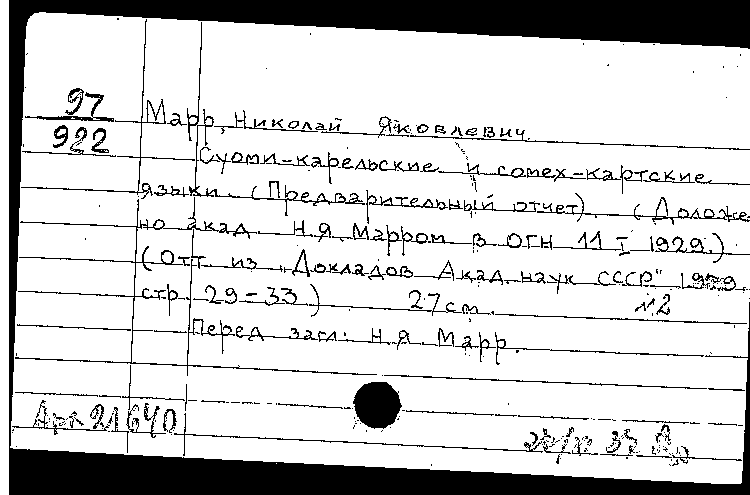 97
922
Марр, Николай Яковлевич.
Суоми-карельские и сомех-картские
языки. (Предварительный отчет). (Доложе
но акад. Н.Я. Марром в ОГН 11 I 1929.)
(Отт. из „Докладов Акад. наук СССР" 1929.
стр. 29-33.) 27 см. №2
Перед загл.: Н.Я. Марр.
21640